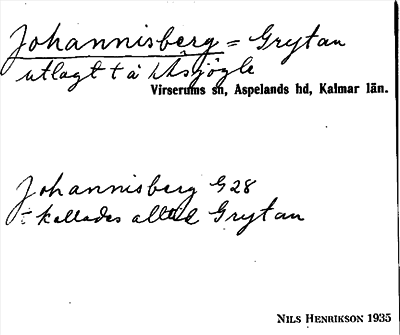 Johannisberg = Grytan
utlagt t å
Virserums sn, Aspelands hd, Kalmar län.
Johannisberg G28
kallades alltid Grytan
NILS HENRIKSON 1935